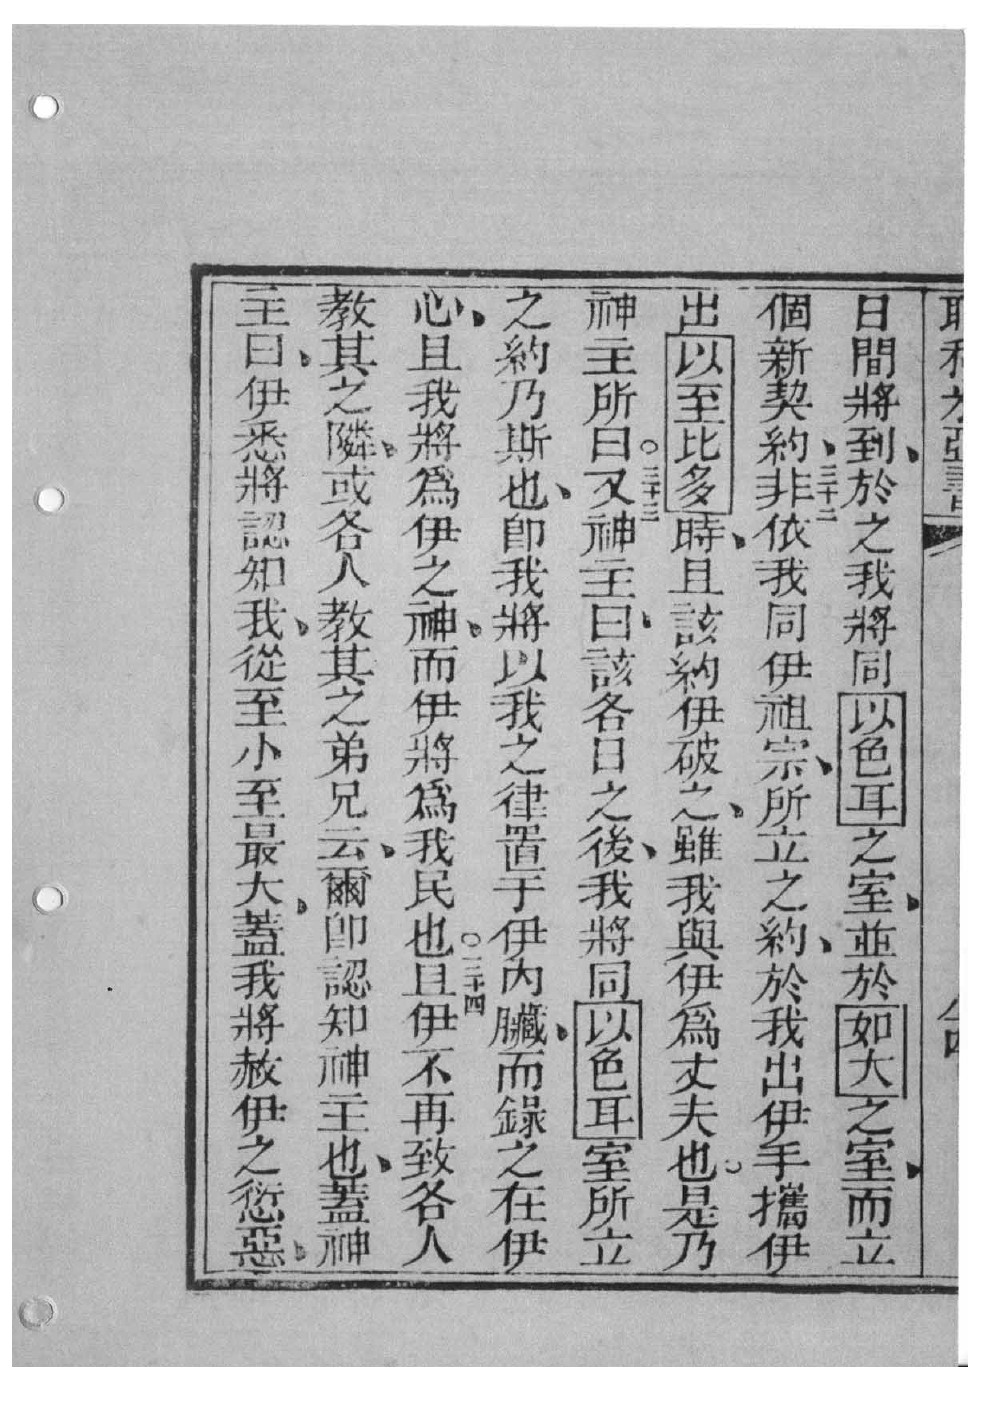 耶利米亞書
日間將到、於之我將同以色耳之室、並於如大之室、而立
個新契約、三十二非依我同伊祖宗、所立之約、於我出伊手攜伊
出以至比多時、且該約伊破之、雖我與伊爲丈夫也。是乃
神主所曰○三十三又神主曰、該各日之後、我將同以色耳室所立
之約乃斯也、卽我將以我之律置于伊內臟、而錄之在伊
心、且我將爲伊之神、而伊將爲我民也○三十四且伊不再致各人
教其之隣、或各人教其之弟兄云、爾卽認知神主也、蓋神
主曰、伊悉將認知我、從至小至最大、蓋我將赦伊之愆惡、